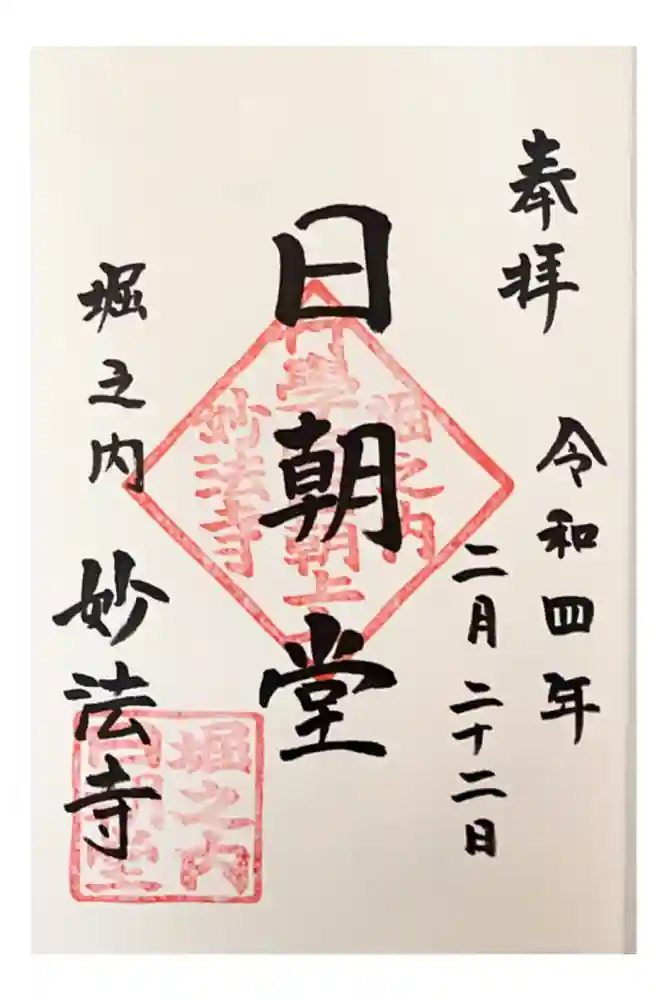 奉拝
令和四年
二月二十二日
日朝堂
堀之内
妙法寺
堀之内
妙法寺
堀之内
日朝堂